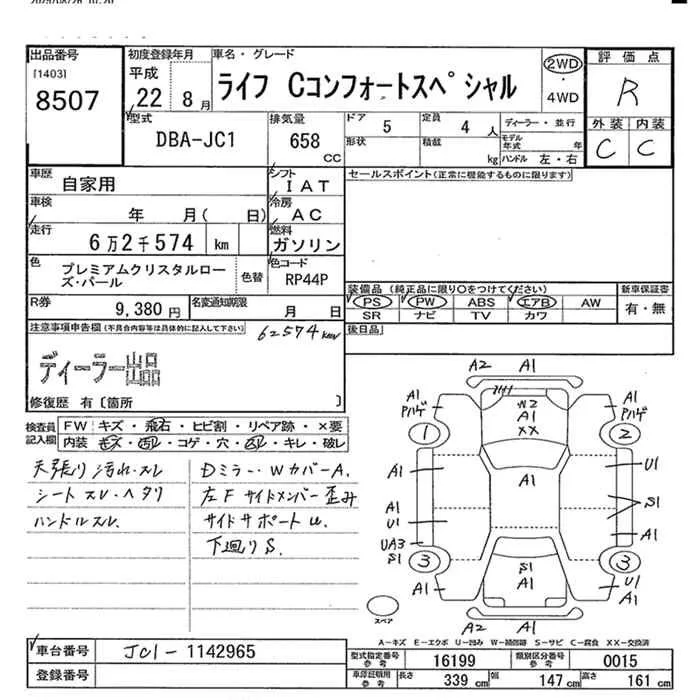 出品番号
[1403]
8507
初度登録年月
平成
22 8月
車名・グレード
ライフ Cコンフォートスペシャル
2WD
・
4WD
評価点
R
外装 内装
C C
型式
DBA-JC1
排気量
658
CC
ドア 5
定員 4 人
形状
積載 kg
ディーラー・並行
モデル年式 年
ハンドル 左・右
車歴
自家用
シフト
IAT
セールスポイント(正常に機能するものに限ります)
車検
年 月( 日)
冷房
AC
走行
6万2千574 km
燃料
ガソリン
色
プレミアムクリスタルローズ・パール
色替
色コード
RP44P
装備品 (純正品に限り○をつけてください)
PS PW ABS エアB AW
SR ナビ TV カワ
新車保証書
有・無
R券
9,380円
名変通知期限
月 日
後日品
注意事項申告欄(不具合内容等は具体的に記入して下さい)
62574km
ディーラー出品
修復歴 有〔箇所 〕
検査員記入欄
FW キズ・飛石・ヒビ割・リペア跡・×要
内装 キズ・凹・コゲ・穴・凹・キレ・破レ
天張り汚れ・スレ
シートスレ・ヘタリ
ハンドルスレ
Dミラー・WカバーA.
左Fサイドメンバー歪み
サイドサポートu.
下廻りS.
A2 A1
A1 Pハゲ
W2
A1
XX
A1 Pハゲ
1 2
A1 A1 U1
A1 U1
S1
UA3 S1
A1
3 3
A1
S1
A1
U1
A1
スペア
A2 A1
A-キズ E-エクボ U-凹み W-補修跡 S-サビ C-腐食 XX-交換済
車台番号
JC1-1142965
登録番号
型式指定番号 参考
16199
類別区分番号 参考
0015
車庫証明用 参考
長さ 339 cm
幅 147 cm
高さ 161 cm